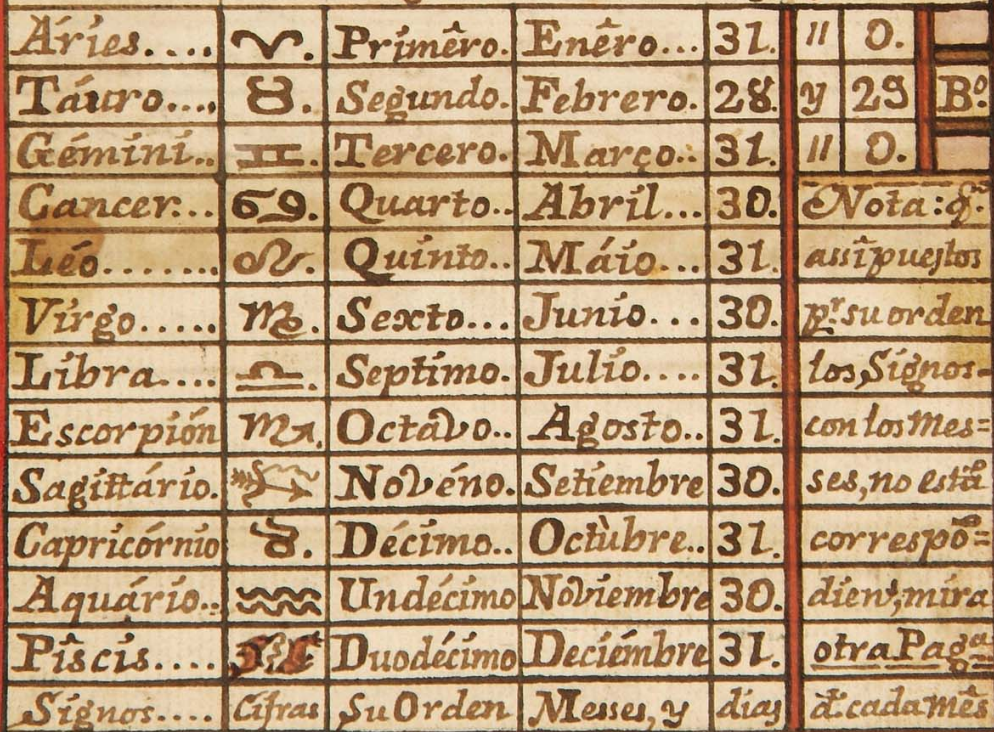 Áries.... ♈. Primêro. Enêro... 31. " 0.
Táuro.... ♉. Segundo. Febrero. 28. y 29 B.º
Gémini.. ♊. Tercero. Março.. 31. " 0.
Cancer... ♋. Quarto.. Abril... 30. Nota: q.
Léo........ ♌. Quinto.. Máio... 31. assi puestos
Virgo..... ♍. Sexto... Junio... 30. p.r su orden
Libra.... ♎. Septimo. Julio.... 31. los Signos-
Escorpión ♏. Octavo.. Agosto.. 31. con los Mes=
Sagittário. ♐ Novéno. Setiembre 30. ses, no está
Capricórnio ♑. Décimo.. Octùbre.. 31. correspõ=
Aquário.. ♒ Undécimo Noviembre 30. dient, mira
Piscis.... ♓ Duodécimo Deciémbre 31. otra Pag.na
Signos.... Cifras Su Orden Messes, y dias đ cada mês